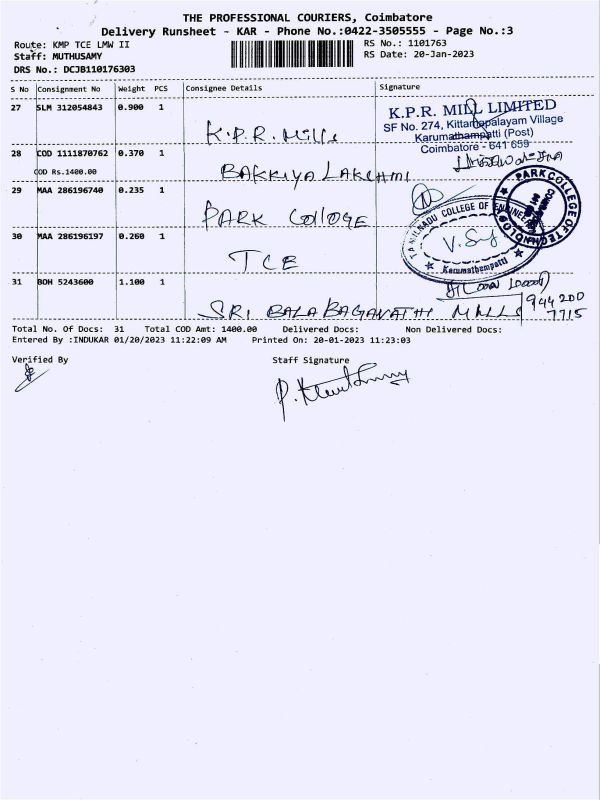 THE PROFESSIONAL COURIERS, Coimbatore
Delivery Runsheet - KAR - Phone No.:0422-3505555 - Page No.:3
Route: KMP TCE LMW II
RS No.: 1101763
Staff: MUTHUSAMY
RS Date: 20-Jan-2023
DRS No.: DCJB110176303
S No Consignment No Weight PCS Consignee Details Signature
27 SLM 312054843 0.900 1 K.P.R. Mills
K.P.R. MILL LIMITED
SF No. 274, Kittampalayam Village
Karumathampatti (Post)
Coimbatore - 641 659
28 COD 1111870762 0.370 1 BAKKIYA LAKSHMI
COD Rs.1400.00
29 MAA 286196740 0.235 1 PARK COLLOGE
PARK COLLEGE OF TECHNOLOGY
30 MAA 286196197 0.260 1 TCE
TAMILNADU COLLEGE OF ENGINEERING
Karumathampatti
31 BOH 5243600 1.100 1 SRI BALA BAGAVATHI MILLS
944200
7715
Total No. Of Docs: 31 Total COD Amt: 1400.00 Delivered Docs: Non Delivered Docs:
Entered By :INDUKAR 01/20/2023 11:22:09 AM Printed On: 20-01-2023 11:23:03
Verified By Staff Signature